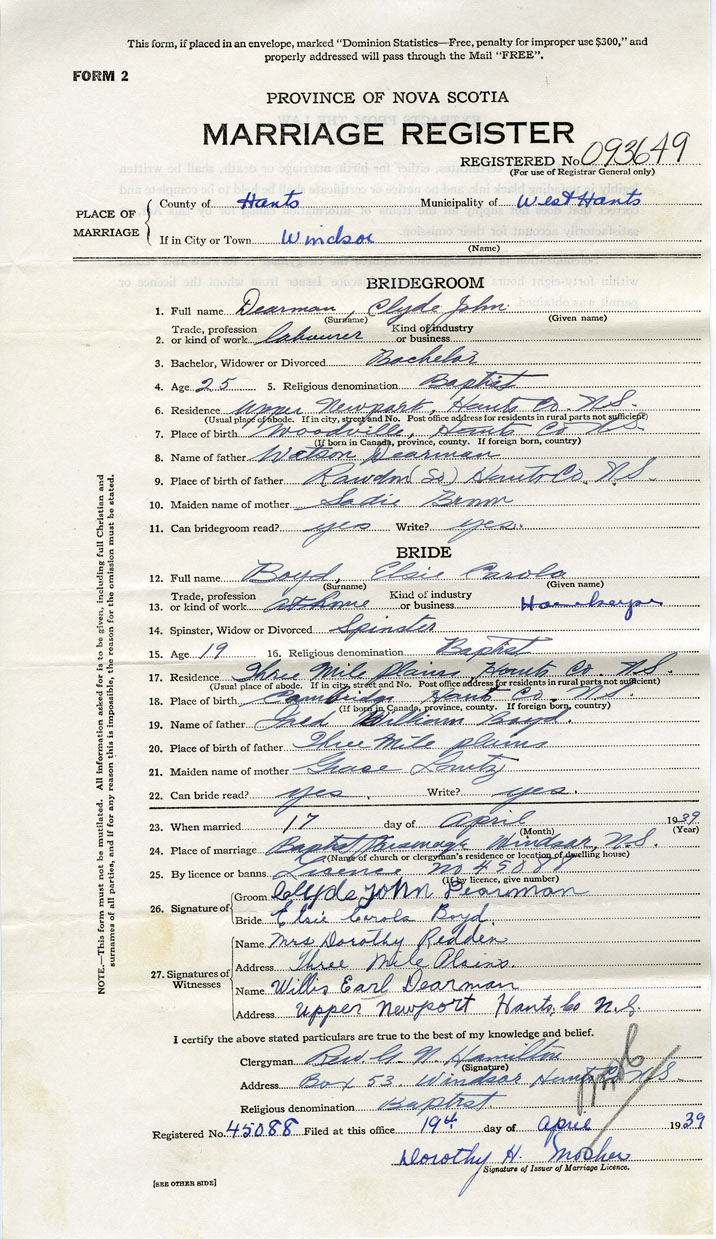 This form, if placed in an envelope, marked "Dominion Statistics—Free, penalty for improper use $300," and
properly addressed will pass through the Mail "FREE".
FORM 2
PROVINCE OF NOVA SCOTIA
MARRIAGE REGISTER
REGISTERED No. 093649
(For use of Registrar General only)
PLACE OF MARRIAGE
County of Hants Municipality of West Hants
If in City or Town Windsor
(Name)
BRIDEGROOM
1. Full name Dearman, Clyde John
(Surname) (Given name)
2. Trade, profession or kind of work labourer Kind of industry or business
3. Bachelor, Widower or Divorced Bachelor
4. Age 25 5. Religious denomination Baptist
6. Residence Upper Newport, Hants Co. N.S.
(Usual place of abode. If in city, street and No. Post office address for residents in rural parts not sufficient)
7. Place of birth Woodville, Hants Co N.S.
(If born in Canada, province, county. If foreign born, country)
8. Name of father Watson Dearman
9. Place of birth of father Rawdon (So) Hants Co. N.S.
10. Maiden name of mother Sadie
11. Can bridegroom read? yes Write? yes.
BRIDE
12. Full name Boyd, Elsie Carola
(Surname) (Given name)
13. Trade, profession or kind of work at home Kind of industry or business
14. Spinster, Widow or Divorced Spinster
15. Age 19 16. Religious denomination Baptist
17. Residence Three Mile Plains, Hants Co. N.S.
(Usual place of abode. If in city, street and No. Post office address for residents in rural parts not sufficient)
18. Place of birth Cambridge, Hants Co. N.S.
(If born in Canada, province, county. If foreign born, country)
19. Name of father Fred William Boyd.
20. Place of birth of father Three Mile plains
21. Maiden name of mother Grace
22. Can bride read? yes. Write? yes.
23. When married 17 day of April 1939
(Month) (Year)
24. Place of marriage Baptist Parsonage Windsor, N.S.
(Name of church or clergyman's residence or location of dwelling house)
25. By licence or banns Licence M 45088
(If by licence, give number)
26. Signature of
Groom Clyde John Dearman
Bride Elsie Carola Boyd.
27. Signatures of Witnesses
Name Mrs Dorothy Redden
Address Three Mile Plains.
Name Willis Earl Dearman
Address Upper Newport Hants, Co N.S
I certify the above stated particulars are true to the best of my knowledge and belief.
Clergyman Rev. G. N. Hamilton
(Signature)
Address Box 53. Windsor Hants Co N.S.
Religious denomination Baptist
Registered No. 45088 Filed at this office 19th day of April 1939
Dorothy H. Mosher
Signature of Issuer of Marriage Licence.
[SEE OTHER SIDE]
NOTE.—This form must not be mutilated. All information asked for is to be given, including full Christian and
surnames of all parties, and if for any reason this is impossible, the reason for the omission must be stated.